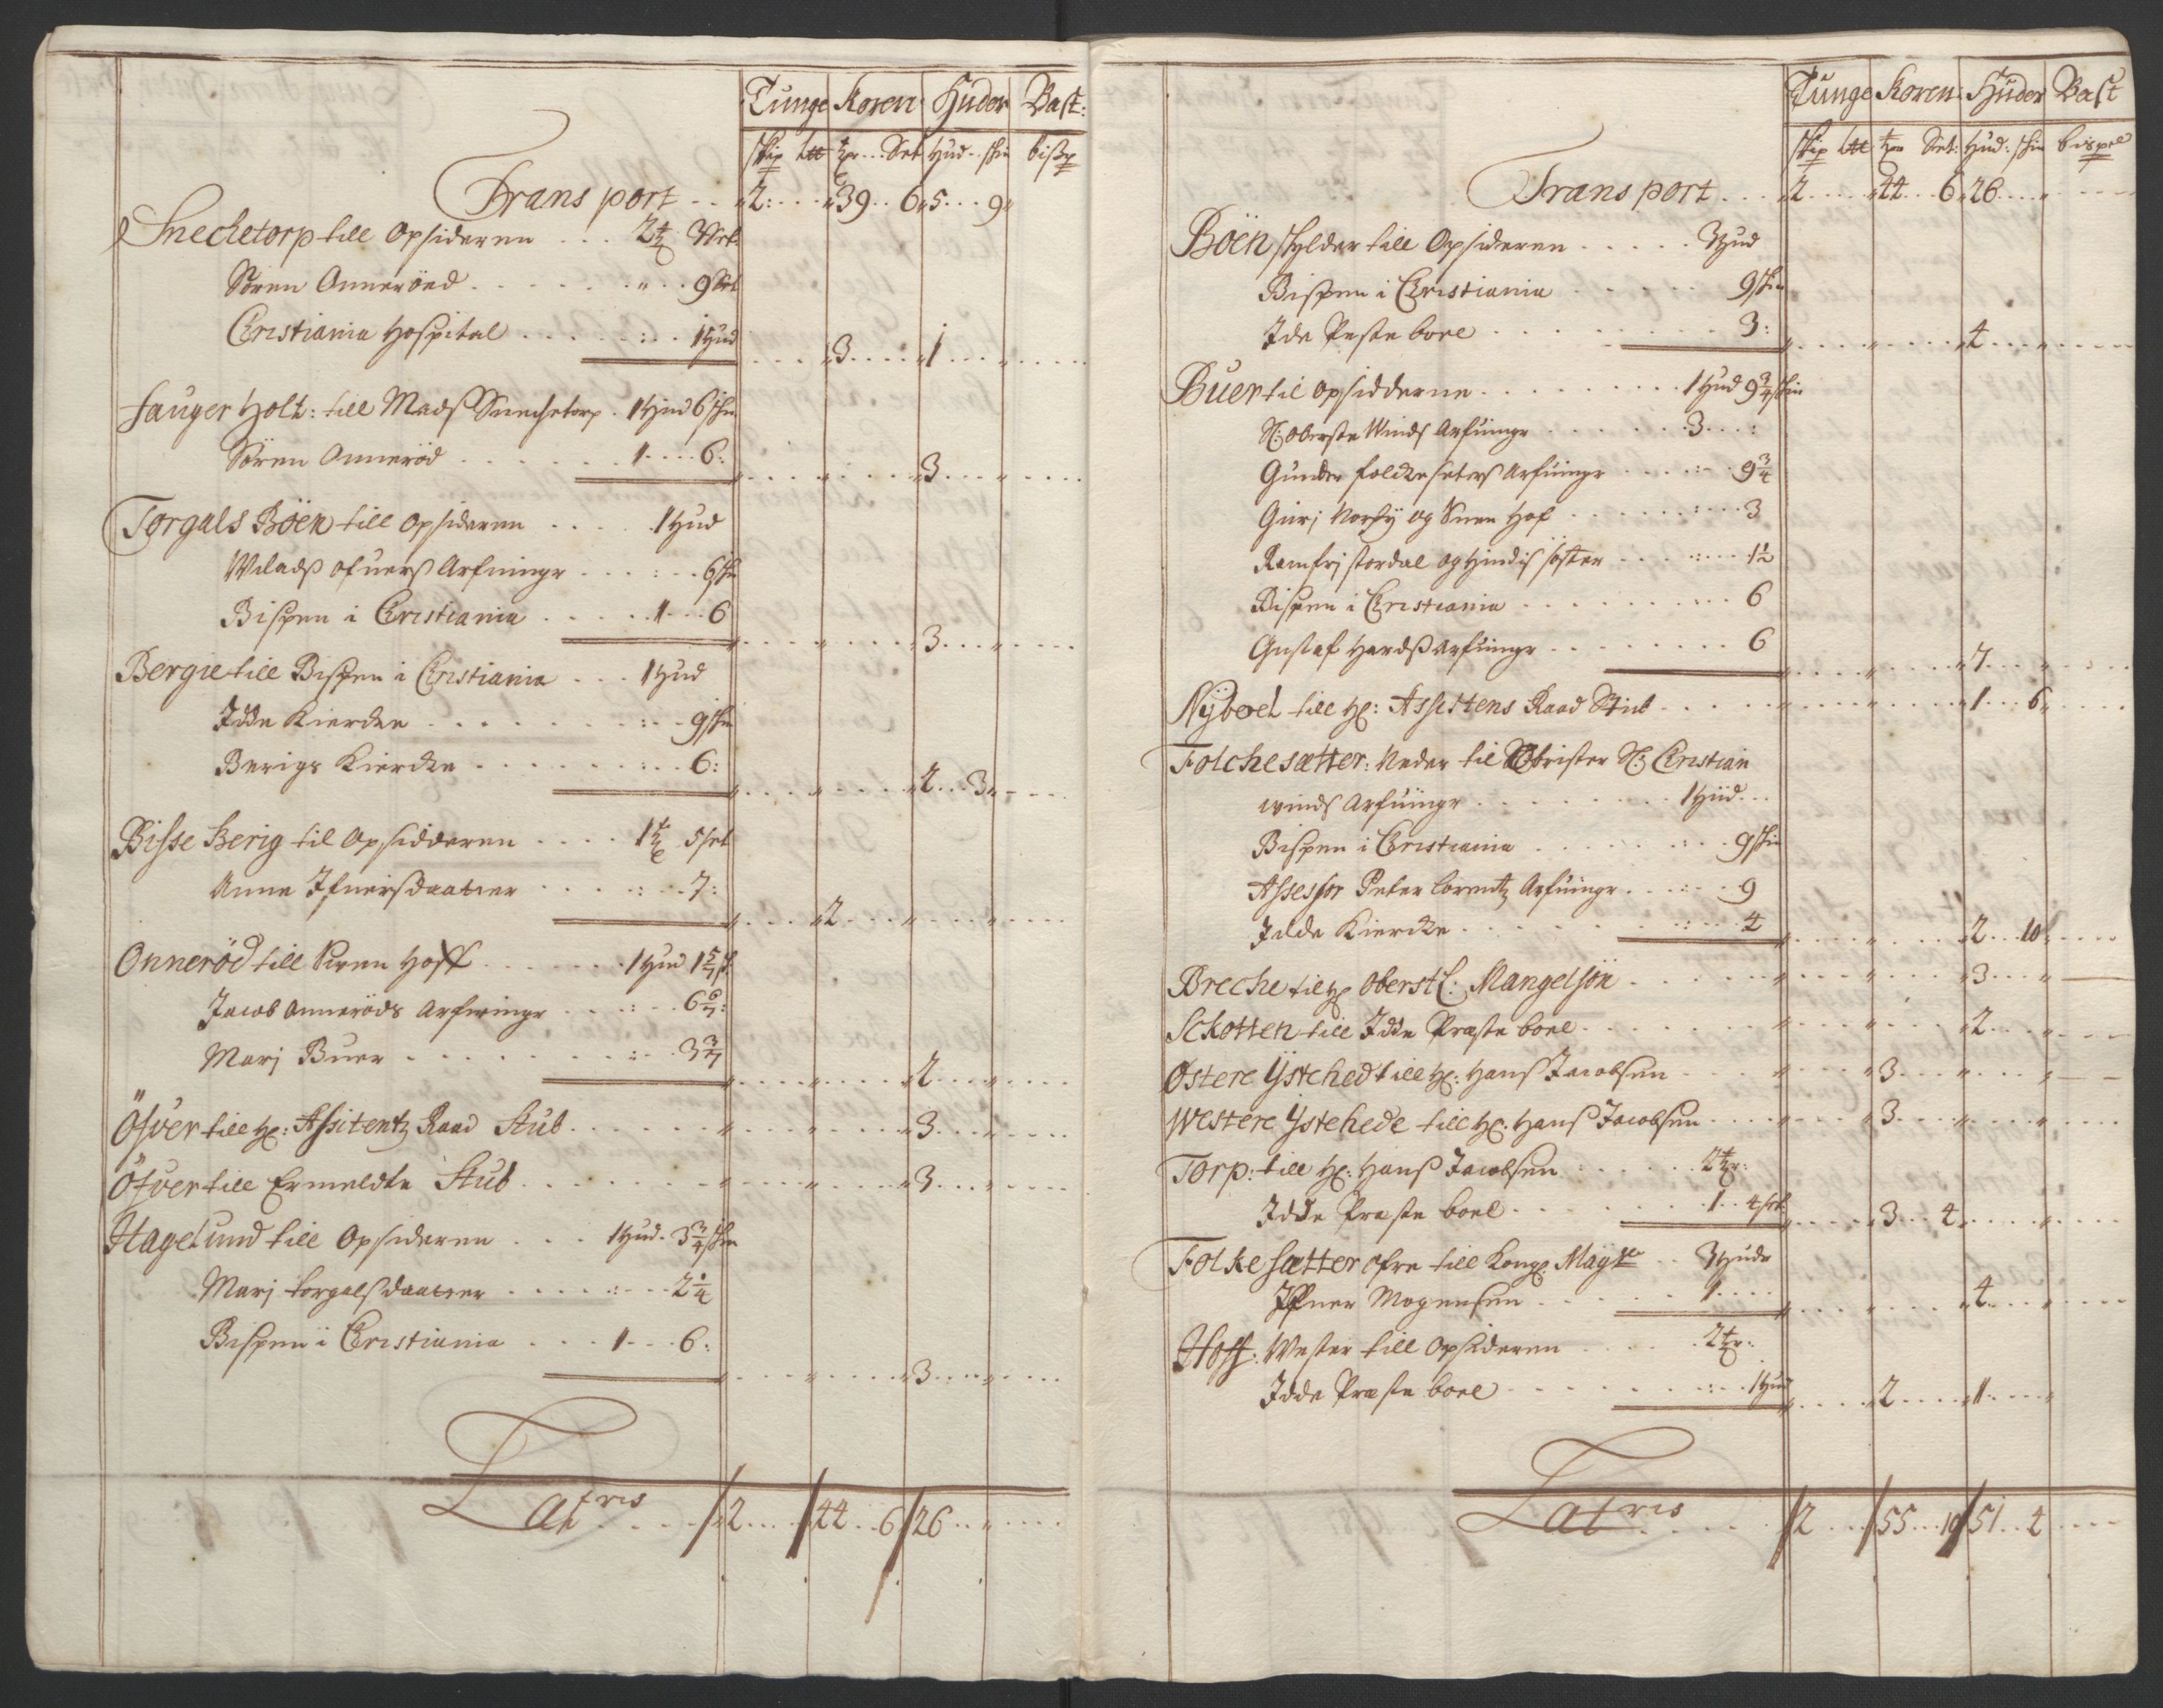 Tunge Koren Huder Bast:
skip ltt tr Set Hud skin bißp
Transport 2 39 6 5 9
Snechetorp till Opsideren 2 tr 3 Set
Sören Onneröed 9 Set
Christiania Hospital 1 Hud
3 1
Fauger Holt: till Madß Snechetorp 1 Hud 6 skin
Sören Onneröd 1 6:
3
Torgals Böen till Opsideren 1 Hud
Arfuingr 6 skin
Bispen i Christiania 1 6
3
Bergie till Bispen i Christiania 1 Hud
Idde Kiercke 9 skin
Berigs Kiercke 6:
2 3
Bisse Berig til Opsidderen 1 tr 5 set
Anne Ifuersdaatter 7:
2
Onneröd till Suen Hoff 1 Hud 1 5/7 s
Jacob Onneröds Arfuingr 6 6/7:
Marj Buer 3 3/7
2
Öfver till Hr: Assitentz Raad Stub 3
Öfver till Ermeldte Stub 3
Hagelund till Opsideren 1 Hud 3 3/4 skin
Marj Torgalsdaatter 2 1/4
Bispen i Christiania 1 6:
3
Latris 2 44 6 26
Tunge Koren: Huder Bast
skip ltt tr Set: Hud: skin bispel
Transport 2 44 6 26
Böen skylder till Opsideren 3 Hud
Bispen i Christiania 9 skin
Ide Preste boel 3:
4
Buer til Opsidderne 1 Hud 9 3/4 skin
Sl: Oberste Winds Arfuingr 3
Gunder Folckesetters Arfuingr 9 3/4
Gurj Norby og Suen Hof 3
Ramfrj Stordal og Hindis söster 1 1/2
Bispen i Christiania 6
Gustaf Hardß Arfuingr 6
7
Nÿboel till Hr: Assistens Raad Stub 1 6
Folchesætter: Neder til Obrister Sl: Christian
Winds Arfuingr 1 Hud
Bispen i Christiania 9 skin
Assessor Peter Lorentz Arfuingr 9
Idde Kiercke 4
2 10
Breche til Hr Oberstl: Mangelsön 3
Schotten till Idde Præste boel 2
Østere Ÿstehed till Hr: Hanß Jacobsen 3
Westere Ÿstehede till Hr. Hanß Jacobsen 3
Torp: till Hr: Hanß Jacobsen 2 tr:
Idde Præste boel 1 4 set
3 4
Folkesætter ofre till Kongl: Mayt 3 Hude
Ifuer Mogensen 1
4
Hoff: Wester till Opsideren 2 tr:
Idde Præste boel 1 Hud
2 1
Latris 2 55 10 51 4